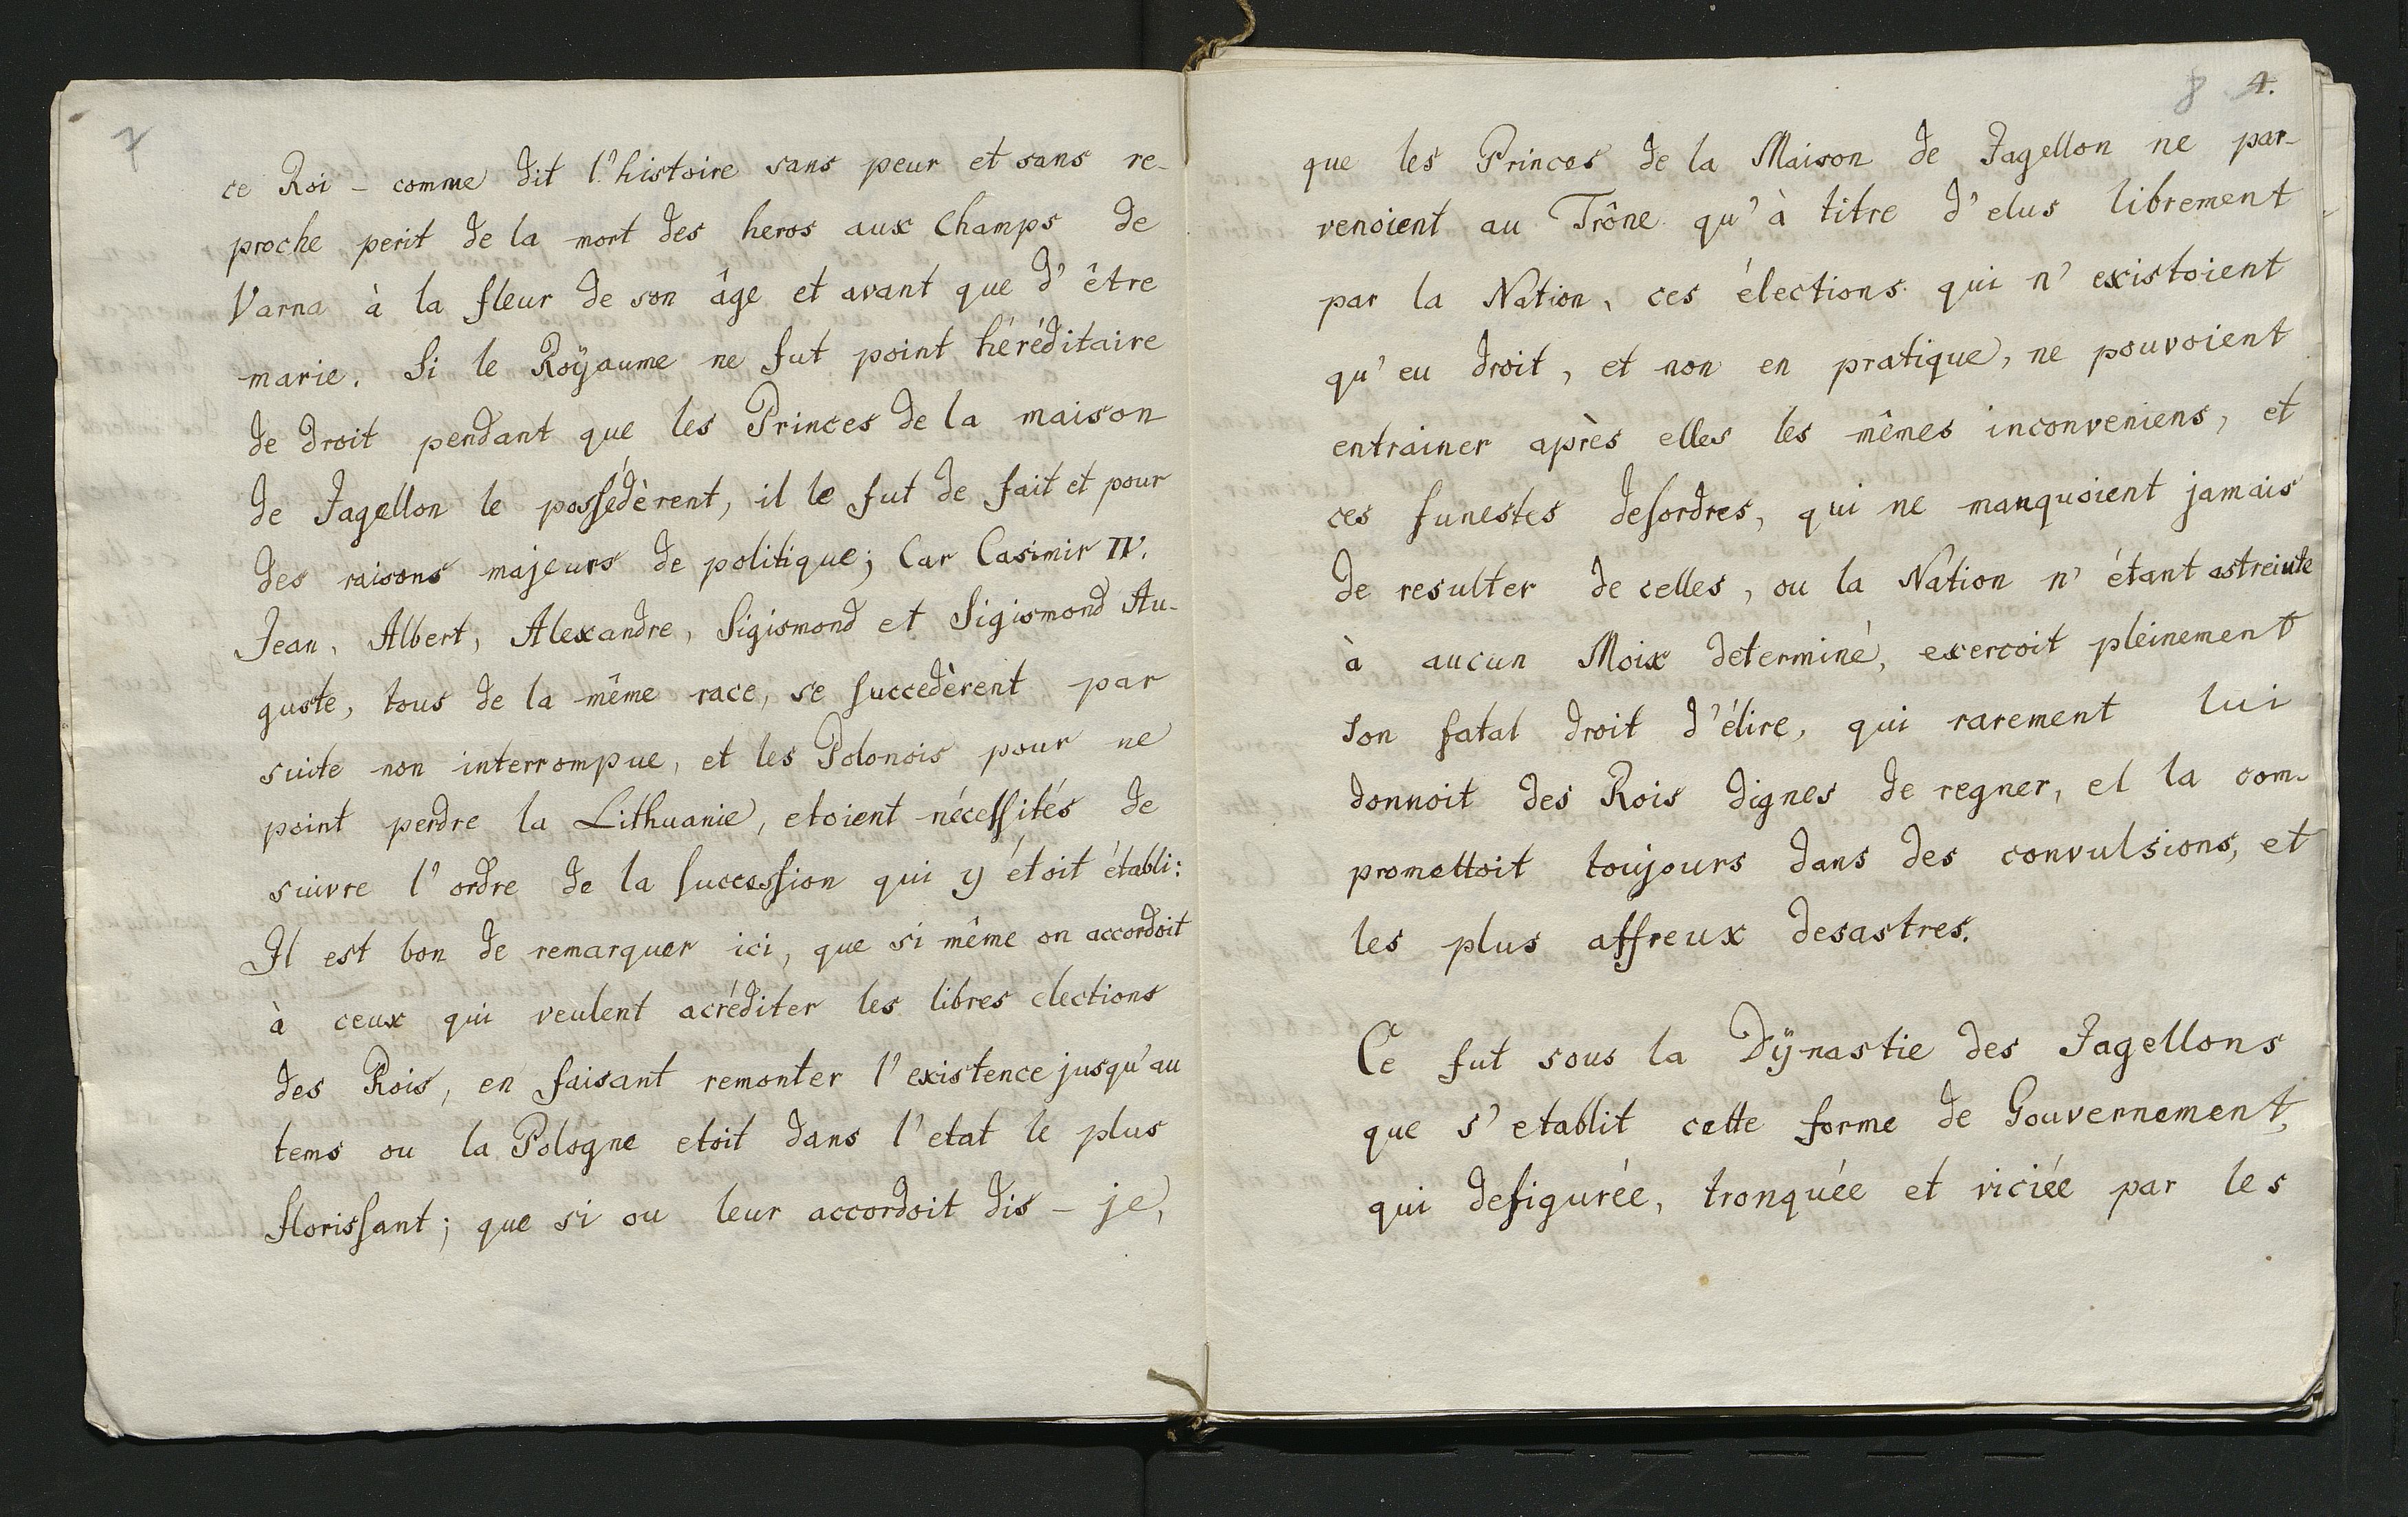 7
ce Roi - comme dit l'histoire sans peur et sans re-
proche perit de la mort des heros aux Champs de
Varna à la fleur de son âge et avant que d'être
marie. Si le Roÿaume ne fut point héréditaire
de droit pendant que les Princes de la maison
de Jagellon le possédèrent, il le fut de fait et pour
des raisons majeurs de politique; Car Casimir IV.
Jean, Albert, Alexandre, Sigismond et Sigismond Au-
guste, tous de la même race, se succedèrent par
suite non interrompue, et les Polonois pour ne
point perdre la Lithuanie, etoient nécessités de
suivre l'ordre de la succession qui y étoit établi:
Il est bon de remarquer ici, que si même on accordoit
à ceux qui veulent acréditer les libres elections
des Rois, en faisant remonter l'existence jusqu'au
tems ou la Pologne etoit dans l'etat le plus
florissant; que si ou leur accordoit dis - je,
8 4.
que les Princes de la Maison de Jagellon ne par-
venoient au Trône qu'à titre d'elus librement
par la Nation, ces élections qui n'existoient
qu'eu droit, et non en pratique, ne pouvoient
entrainer après elles les mêmes inconveniens, et
ces funestes desordres, qui ne manquoient jamais
de resulter de celles, ou la Nation n'étant astreinte
à aucun Moix determiné, exercoit pleinement
son fatal droit d'élire, qui rarement lui
donnoit des Rois dignes de regner, el la com-
promettoit toujours dans des convulsions, et
les plus affreux desastres.
Ce fut sous la Dÿnastie des Jagellons
que s'etablit cette forme de Gouvernement,
qui defigurée, tronquée et viciée par les